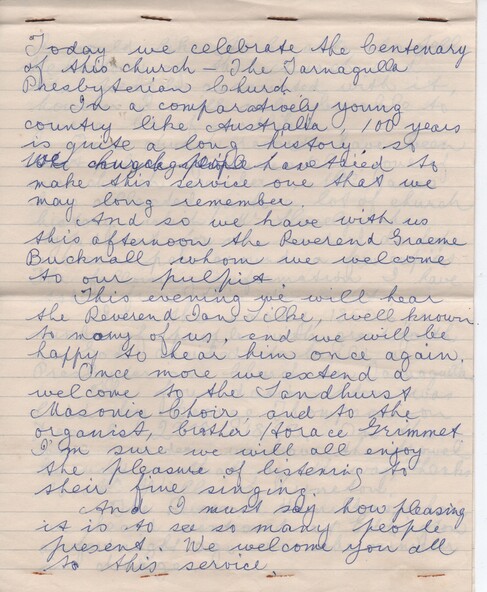 Today we celebrate the Centenary
of this church – The Tarnagulla
Presbyterian Church
In a comparatively young
country like Australia, 100 years
is quite a long history, so
have tried to
make this service one that we
may long remember.
And so we have with us
this afternoon the Reverend Graeme
Bucknall whom we welcome
to our pulpit.
This evening we will hear
the Reverend Ian Tilke, well known
to many of us, and we will be
happy to hear him once again.
Once more we extend a
welcome to the Sandhurst
Masonic Choir, and to the
organist, brother Horace Grimmet
I'm sure we will all enjoy
the pleasure of listening to
their fine singing.
And I must say how pleasing
it is to see so many people
present. We welcome you all
to this service.